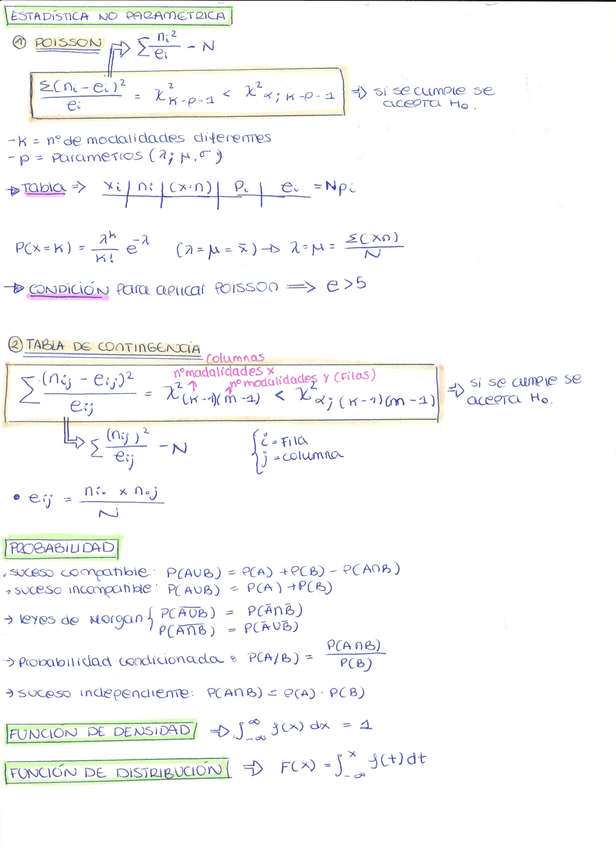 ESTADÍSTICA NO PARAMÉTRICA
① POISSON → Σ nᵢ²/eᵢ − N
Σ(nᵢ − eᵢ)²/eᵢ = χ²ₖ₋ₚ₋₁ < χ²α; ₖ₋ₚ₋₁ ⇒ si se cumple se acepta H₀.
- K = nº de modalidades diferentes
- p = Parametros (λ; μ, σ)
→ Tabla ⇒ xᵢ | nᵢ | (x·n) | Pᵢ | eᵢ = NPᵢ
P(x=K) = λᴷ/K! e^−λ (λ = μ = x̄) → λ = μ = Σ(xn)/N
→ CONDICIÓN Para aplicar POISSON ⇒ e > 5
② TABLA DE CONTINGENCIA
columnas
nº modalidades x
nº modalidades y (Filas)
Σ (nᵢⱼ − eᵢⱼ)²/eᵢⱼ = χ²(K−1)(m−1) < χ²α; (K−1)(m−1) ⇒ si se cumple se acepta H₀.
Σ (nᵢⱼ)²/eᵢⱼ − N { i = Fila
j = columna
• eᵢⱼ = nᵢ. × n.ⱼ / N
PROBABILIDAD
. suceso compatible: P(A∪B) = P(A) + P(B) − P(A∩B)
. suceso incompatible: P(A∪B) = P(A) + P(B)
→ Leyes de Morgan { P(A̅∪̅B̅) = P(A̅∩B̅)
P(A̅∩̅B̅) = P(A̅∪B̅)
→ Probabilidad condicionada: P(A/B) = P(A∩B)/P(B)
→ suceso independiente: P(A∩B) = P(A) · P(B)
FUNCIÓN DE DENSIDAD ⇒ ∫₋∞^∞ f(x) dx = 1
FUNCIÓN DE DISTRIBUCIÓN ⇒ F(x) = ∫₋∞^x f(t) dt